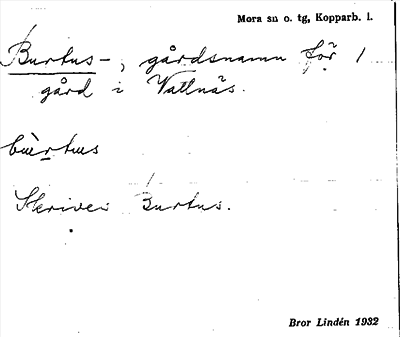 Mora sn o. tg, Kopparb. l.
Burtus-, gårdsnamn för 1
gård i Vattnäs.
bùrtus
Skrives Burtus.
Bror Lindén 1932